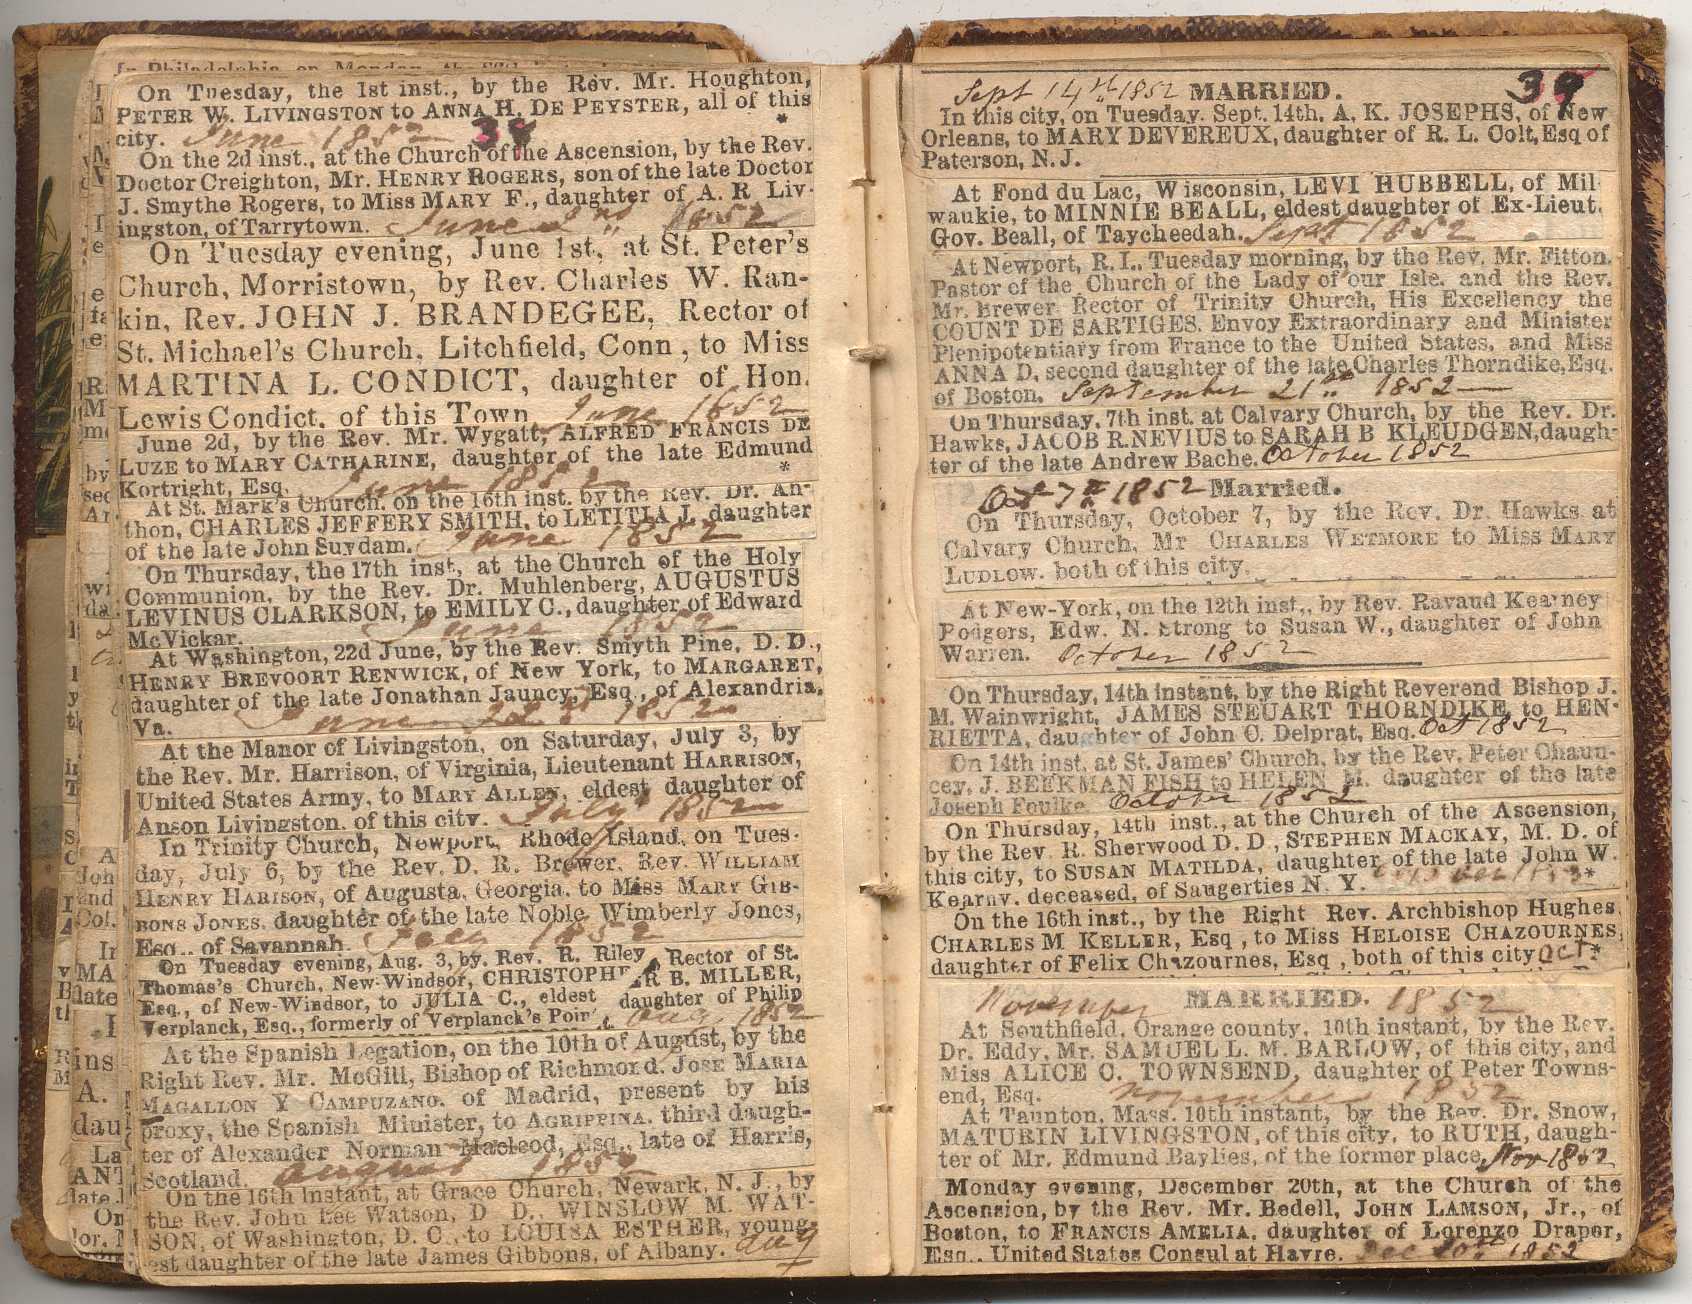 On Tuesday, the 1st inst., by the Rev. Mr. Houghton,
PETER W. LIVINGSTON to ANNA H. DE PEYSTER, all of this
city. June 1852 *
On the 2d inst., at the Church of the Ascension, by the Rev.
Doctor Creighton, Mr. HENRY ROGERS, son of the late Doctor
J. Smythe Rogers, to Miss MARY F., daughter of A. R. Liv-
ingston, of Tarrytown. June 2nd 1852
On Tuesday evening, June 1st, at St. Peter's
Church, Morristown, by Rev. Charles W. Ran-
kin, Rev. JOHN J. BRANDEGEE, Rector of
St. Michael's Church, Litchfield, Conn., to Miss
MARTINA L. CONDICT, daughter of Hon.
Lewis Condict, of this Town June 1852
June 2d, by the Rev. Mr. Wygatt, ALFRED FRANCIS DE
LUZE to MARY CATHARINE, daughter of the late Edmund
Kortright, Esq. June 1852 *
At St. Mark's Church, on the 16th inst. by the Rev. Dr. An-
thon, CHARLES JEFFERY SMITH, to LETITIA J. daughter
of the late John Suydam. June 1852
On Thursday, the 17th inst, at the Church of the Holy
Communion, by the Rev. Dr. Muhlenberg, AUGUSTUS
LEVINUS CLARKSON, to EMILY C., daughter of Edward
McVickar. June 1852
At Washington, 22d June, by the Rev. Smyth Pine, D. D.,
HENRY BREVOORT RENWICK, of New York, to MARGARET,
daughter of the late Jonathan Jauncy, Esq., of Alexandria,
Va. June 22d 1852
At the Manor of Livingston, on Saturday, July 3, by
the Rev. Mr. Harrison, of Virginia, Lieutenant HARRISON,
United States Army, to MARY ALLEN, eldest daughter of
Anson Livingston, of this city. July 1852
In Trinity Church, Newport, Rhode Island, on Tues-
day, July 6, by the Rev. D. R. Brewer, Rev. WILLIAM
HENRY HARISON, of Augusta, Georgia, to Miss MARY GIB-
BONS JONES, daughter of the late Noble Wimberly Jones,
Esq., of Savannah. July 1852
On Tuesday evening, Aug. 3, by. Rev. R. Riley Rector of St.
Thomas's Church, New-Windsor, CHRISTOPHER B. MILLER,
Esq., of New-Windsor, to JULIA C., eldest daughter of Philip
Verplanck, Esq., formerly of Verplanck's Poin Aug. 1852
At the Spanish Legation, on the 10th of August, by the
Right Rev. Mr. McGill, Bishop of Richmond, JOSE MARIA
MAGALLON Y CAMPUZANO, of Madrid, present by his
proxy, the Spanish Minister, to AGRIPPINA, third daugh-
ter of Alexander Norman Macleod, Esq., late of Harris,
Scotland. August 1852
On the 16th instant, at Grace Church, Newark, N. J., by
the Rev. John Lee Watson, D D., WINSLOW M. WAT-
SON, of Washington, D. C., to LOUISA ESTHER, young-
est daughter of the late James Gibbons, of Albany. Aug
Sept 14th 1852 MARRIED. 39
In this city, on Tuesday, Sept. 14th, A. K. JOSEPHS, of New
Orleans, to MARY DEVEREUX, daughter of R. L. Colt, Esq of
Paterson, N. J.
At Fond du Lac, Wisconsin, LEVI HUBBELL, of Mil-
waukie, to MINNIE BEALL, eldest daughter of Ex-Lieut.
Gov. Beall, of Taycheedah. Sept 1852
At Newport, R. I., Tuesday morning, by the Rev. Mr. Fitton,
Pastor of the Church of the Lady of our Isle, and the Rev.
Mr. Brewer Rector of Trinity Church, His Excellency the
COUNT DE SARTIGES, Envoy Extraordinary and Minister
Plenipotentiary from France to the United States, and Miss
ANNA D, second daughter of the late Charles Thorndike, Esq.
of Boston. September 21st 1852
On Thursday, 7th inst. at Calvary Church, by the Rev. Dr.
Hawks, JACOB R. NEVIUS to SARAH B KLEUDGEN, daugh-
ter of the late Andrew Bache. October 1852
Oct 7th 1852 Married.
On Thursday, October 7, by the Rev. Dr. Hawks at
Calvary Church, Mr CHARLES WETMORE to Miss MARY
LUDLOW, both of this city.
At New-York, on the 12th inst,, by Rev. Ravaud Kearney
Rodgers, Edw. N. Strong to Susan W., daughter of John
Warren. October 1852
On Thursday, 14th instant, by the Right Reverend Bishop J.
M. Wainwright, JAMES STEUART THORNDIKE, to HEN-
RIETTA, daughter of John C. Delprat, Esq. Oct 1852
On 14th inst, at St. James' Church, by the Rev. Peter Chaun-
cey, J. BEEKMAN FISH to HELEN M. daughter of the late
Joseph Foulke. October 1852
On Thursday, 14th inst., at the Church of the Ascension,
by the Rev. R. Sherwood D. D, STEPHEN MACKAY, M. D. of
this city, to SUSAN MATILDA, daughter of the late John W.
Kearny, deceased, of Saugerties N. Y. *
On the 16th inst., by the Right Rev. Archbishop Hughes
CHARLES M KELLER, Esq, to Miss HELOISE CHAZOURNES,
daughter of Felix Chazournes, Esq, both of this city Oct *
November MARRIED. 1852
At Southfield, Orange county, 10th instant, by the Rev.
Dr. Eddy, Mr. SAMUEL L. M. BARLOW, of this city, and
Miss ALICE C. TOWNSEND, daughter of Peter Towns-
end, Esq. November 1852
At Taunton, Mass. 10th instant, by the Rev. Dr. Snow,
MATURIN LIVINGSTON, of this city, to RUTH, daugh-
ter of Mr. Edmund Baylies, of the former place, Nov 1852
Monday evening, December 20th, at the Church of the
Ascension, by the Rev. Mr. Bedell, JOHN LAMSON, Jr., of
Boston, to FRANCIS AMELIA, daughter of Lorenzo Draper,
Esq., United States Consul at Havre. 1852